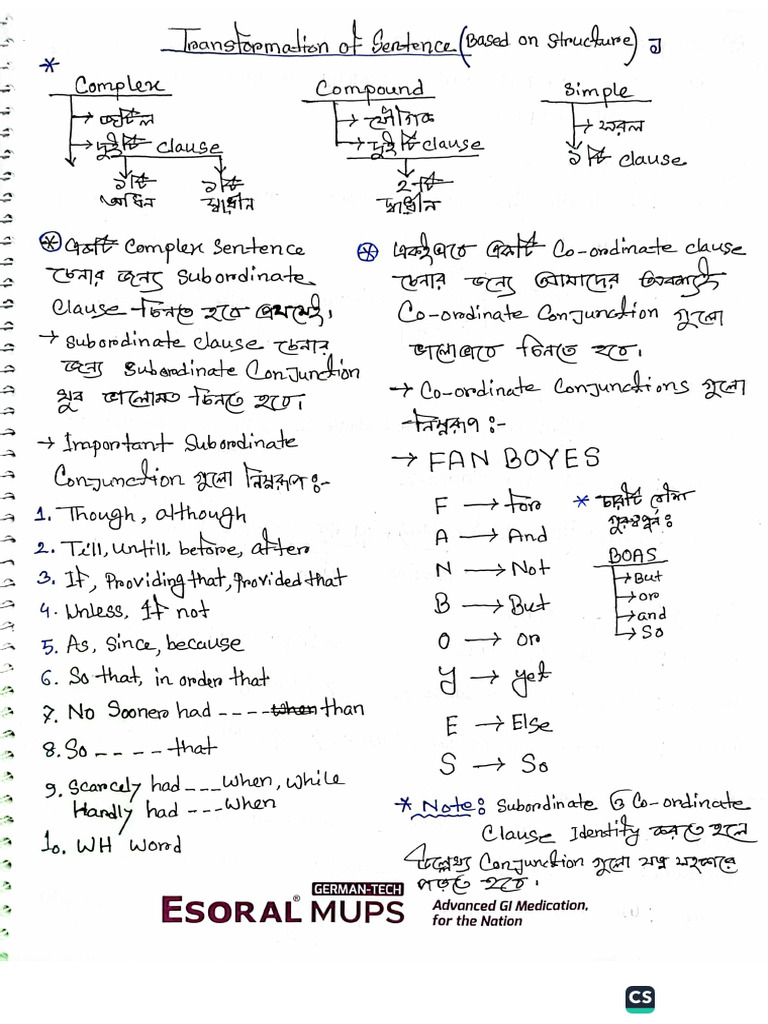 Transformation of Sentence (Based on Structure)
*
Complex
→ জটিল
→ দুইটি clause
১টি অধিন
১টি স্বাধীন
Compound
→ যৌগিক
→ দুইটি clause
২টি স্বাধীন
Simple
→ সরল
১টি clause
* একটি Complex Sentence
চেনার জন্যে Subordinate
Clause চিনতে হবে প্রথমেই।
→ Subordinate clause চেনার
জন্যে Subordinate Conjunction
খুব ভালোমত চিনতে হবে।
→ Important Subordinate
Conjunction গুলো নিম্নরূপ:-
1. Though, although
2. Till, Untill, before, after
3. If, Providing that, provided that
4. Unless, If not
5. As, Since, because
6. So that, in order that
7. No Sooner had ---- when than
8. So ----- that
9. Scarcely had ---when, while
Hardly had ---when
10. WH Word
* একইভাবে একটি Co-ordinate clause
চেনার জন্যে আমাদের অবশ্যই
Co-ordinate Conjunction গুলো
ভালোভাবে চিনতে হবে।
→ Co-ordinate Conjunctions গুলো
নিম্নরূপ:-
→ FAN BOYES
F → for
A → And
N → Not
B → But
O → or
Y → yet
E → Else
S → So
* চারটি বেশি
গুরুত্বপূর্ন:
BOAS
→ But
→ or
→ and
→ So
* Note: Subordinate ও Co-ordinate
Clause Identify করতে হলে
উল্লেখ্য Conjunction গুলো যত্ন সহকারে
পড়তে হবে।
GERMAN-TECH
ESORAL® MUPS
Advanced GI Medication,
for the Nation
CS